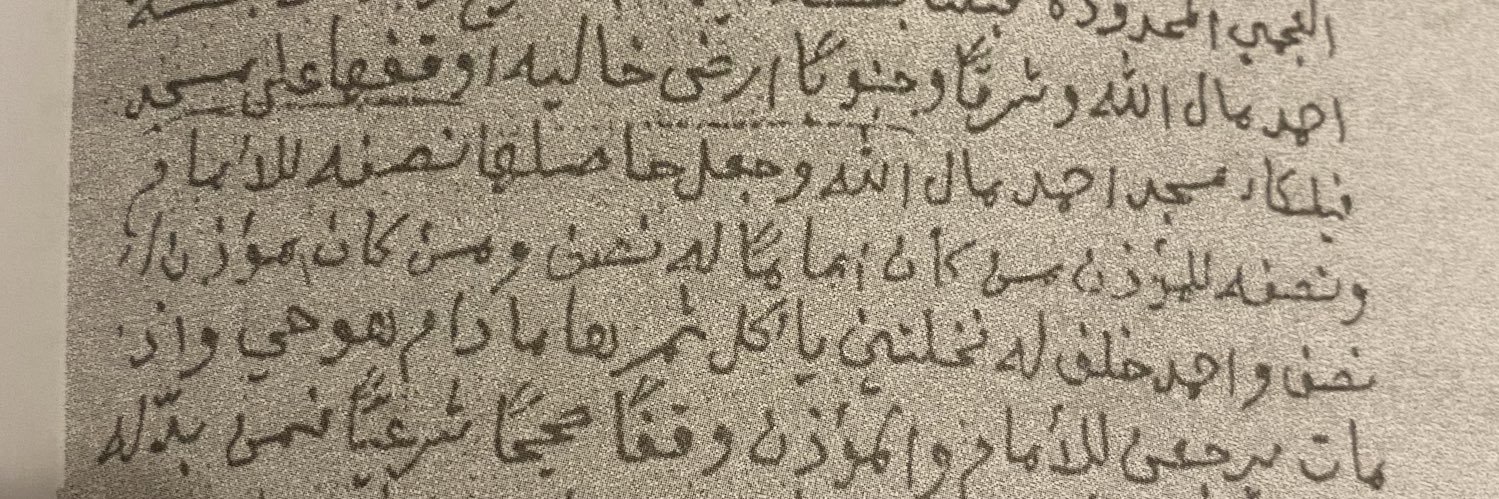 العجمي المحدودة قبلتاً
احمد مال الله وشرقاً وجنوباً ارض خاليه اوقفها على مسجد
مسجد احمد مال الله وجعل حاصلها نصفه للأمام
ونصفه للمؤذن من كان اماماً له نصف ومن كان مؤذن له
نصف واحمد خلف له نخلتين يأكل ثمرها ما دام هو حي واذا
مات يرجعن للأمام والمؤذن وقفاً صحيحاً شرعياً فمن بدّله